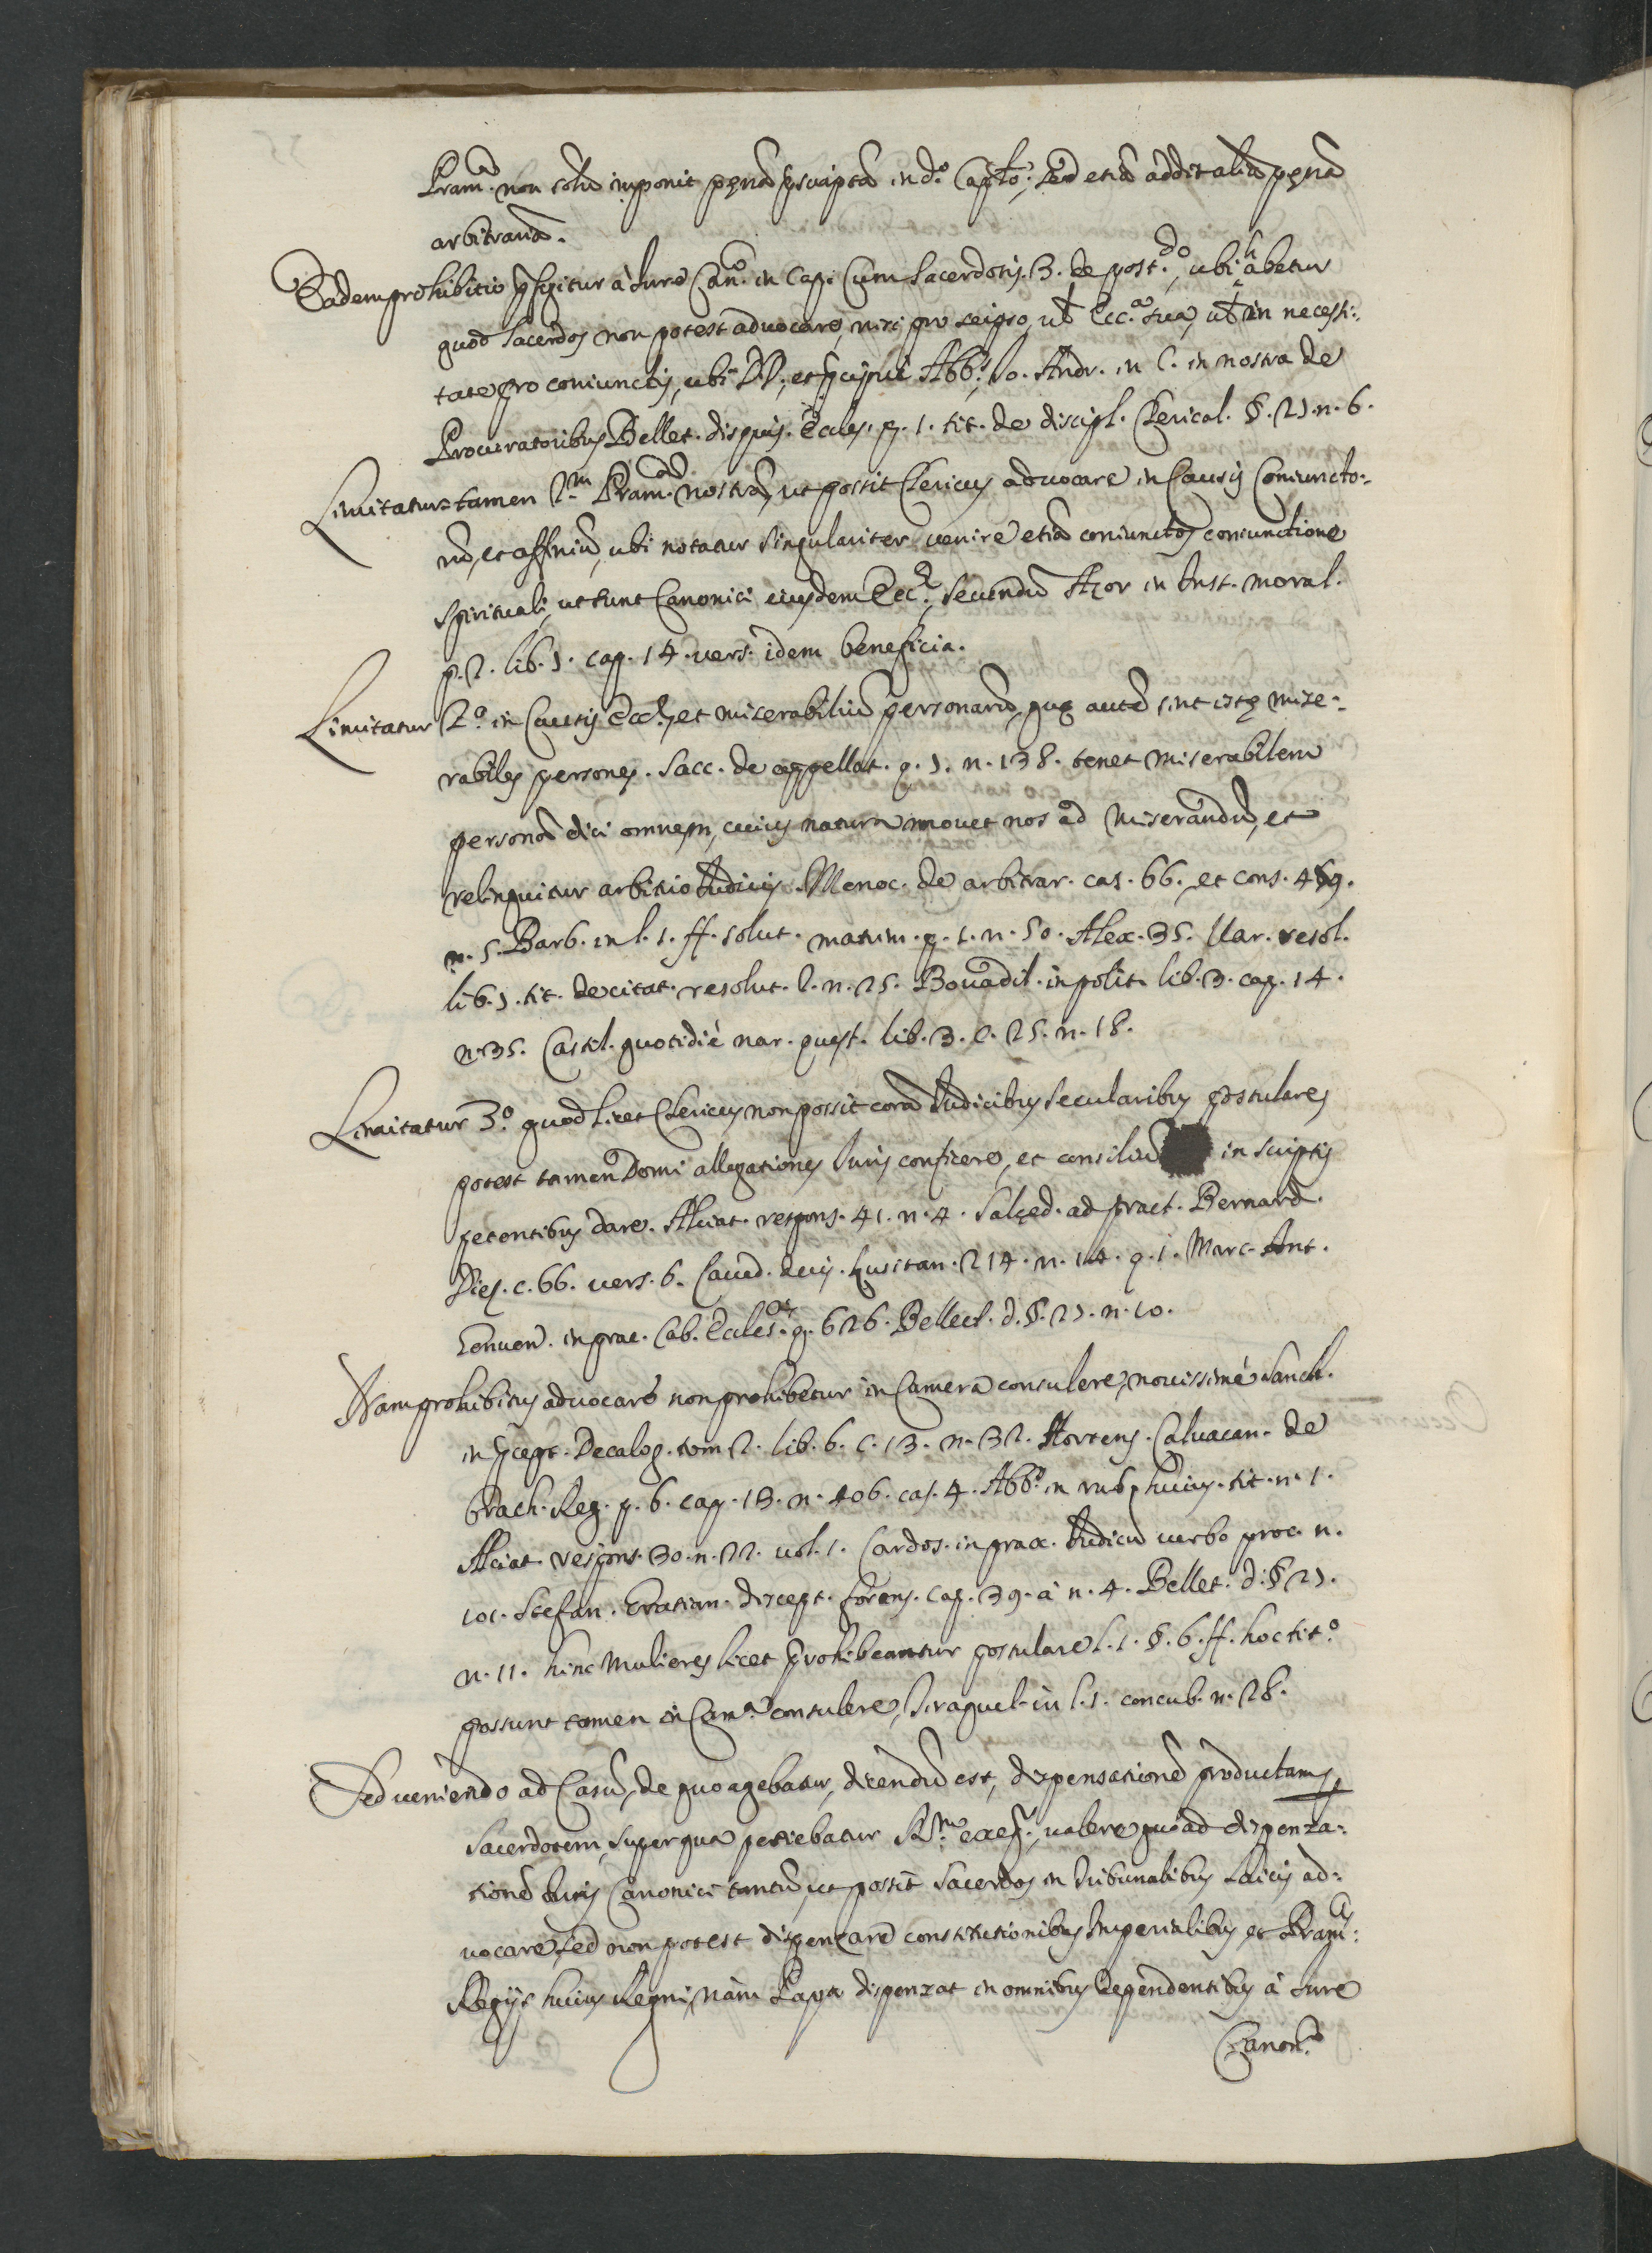 Pram.ca non solũ imponit pęnã pscriptã in d.o Capło; sed etiã addit aliã pęnã
arbitrariã.
Eadem prohibitio psupponitur à Iure Can.o in Cap. Cum Sacerdotis. 3. de post.do, ubi habetur
quod Sacerdos non potest aduocare, nisi pro seipso, ul Ecc.a sua, ul in necessi:
tate pro coniunctis, ubi DD, et pcipuè Abb.s Io. Andr. in C. in nostra de
Procuratoribus Bellet. disquis. Eccles. p. 1. tit. de discipl. Clerical. §. 21. n. 6.
Limitatur tamen p.m Pram.cã nostrã, ut possit Clericus aduocare in Causis Coniuncto:
rũ, et affiniũ, ubi notatur singulariter uenire etiã coniunctos coniunctione
spirituali, ut sunt Canonici eiusdem Ecc.ę, secundũ Azor in Inst. moral.
p. 2. lib. 1. cap. 14. uers. idem beneficia.
Limitatur 2.o in Causis Eccl.ę, et miserabiliũ personarũ, quę autẽ sint istę mise:
rabiles personę. Sacc. de appellat. q. 1. n. 138. tenet miserabilem
personã dici omnem, cuius natura mouet nos ad miserandũ, et
relinquitur arbitrio Iudicis. Menoc. de arbitrar. cas. 66., et cons. 469.
n. 5. Barb. in l. 1. ff. solut. matrim. p. 1. n. 50. Alex. 35. Uar. resol.
lib. 1. tit. de citat. resolut. 2. n. 25. Bouadil. in polit. lib. 3. cap. 14.
n. 35. Castil. quotidiè uar. quęst. lib. 3. c. 25. n. 18.
Limitatur 3.o quod licet Clericus non possit corã Iudicibus secularibus postulare,
potest tamen Domi allegationes Iuris conficere, et consiliũ in scriptis
petentibus dare. Alciat. respons. 41. n. 4. Salzed. ad pract. Bernard.
Diez. c. 66. uers. 6. Caued. decis. Lusitan. 214. n. 14. p. 1. Marc. Ant.
Genuen. in prac. Cab. Eccles.ca q. 626. Bellect. d. §. 21. n. 10.
Nam prohibitus aduocare non prohibetur in Camera consulere, nouissimè Sanch.
in pcept. Decalog. tom 2. lib. 6. c. 13. n. 32. Hortens. Caluacan. de
brach. Reg. p. 6. cap. 13. n. 406. cas. 4. Abb.s in rub. huius tit. n. 1.
Alciat. respons. 30. n. 22. uol. 1. Cardos. in prax. Iudicũ uerbo proc. n.
101. Stefan. Gratian. discept. forens. cap. 39. à n. 4. Bellet. d. § 21.
n. 11. hinc Mulieres licet prohibeantur postulare l. 1. §. 6. ff. hoc tit.o
possunt tamen in Cam.a consulere, Tiraquel. in l. 1. concub. n. 28.
Sed ueniendo ad Casũ, de quo agebatur, dicendũ est, dispensationẽ productam p
Sacerdotem, super qua petiebatur R.m exeq.r, ualere quoad dispensa:
tionẽ Iuris Canonici tantũ, ut possit Sacerdos in tribunalibus Laicis ad:
uocare, sed non potest dispensare constitutionibus Imperialibus, et Pram:cis
Regijs huius Regni, nàm Papa dispensat in omnibus dependentibus à Iure
Canon.co